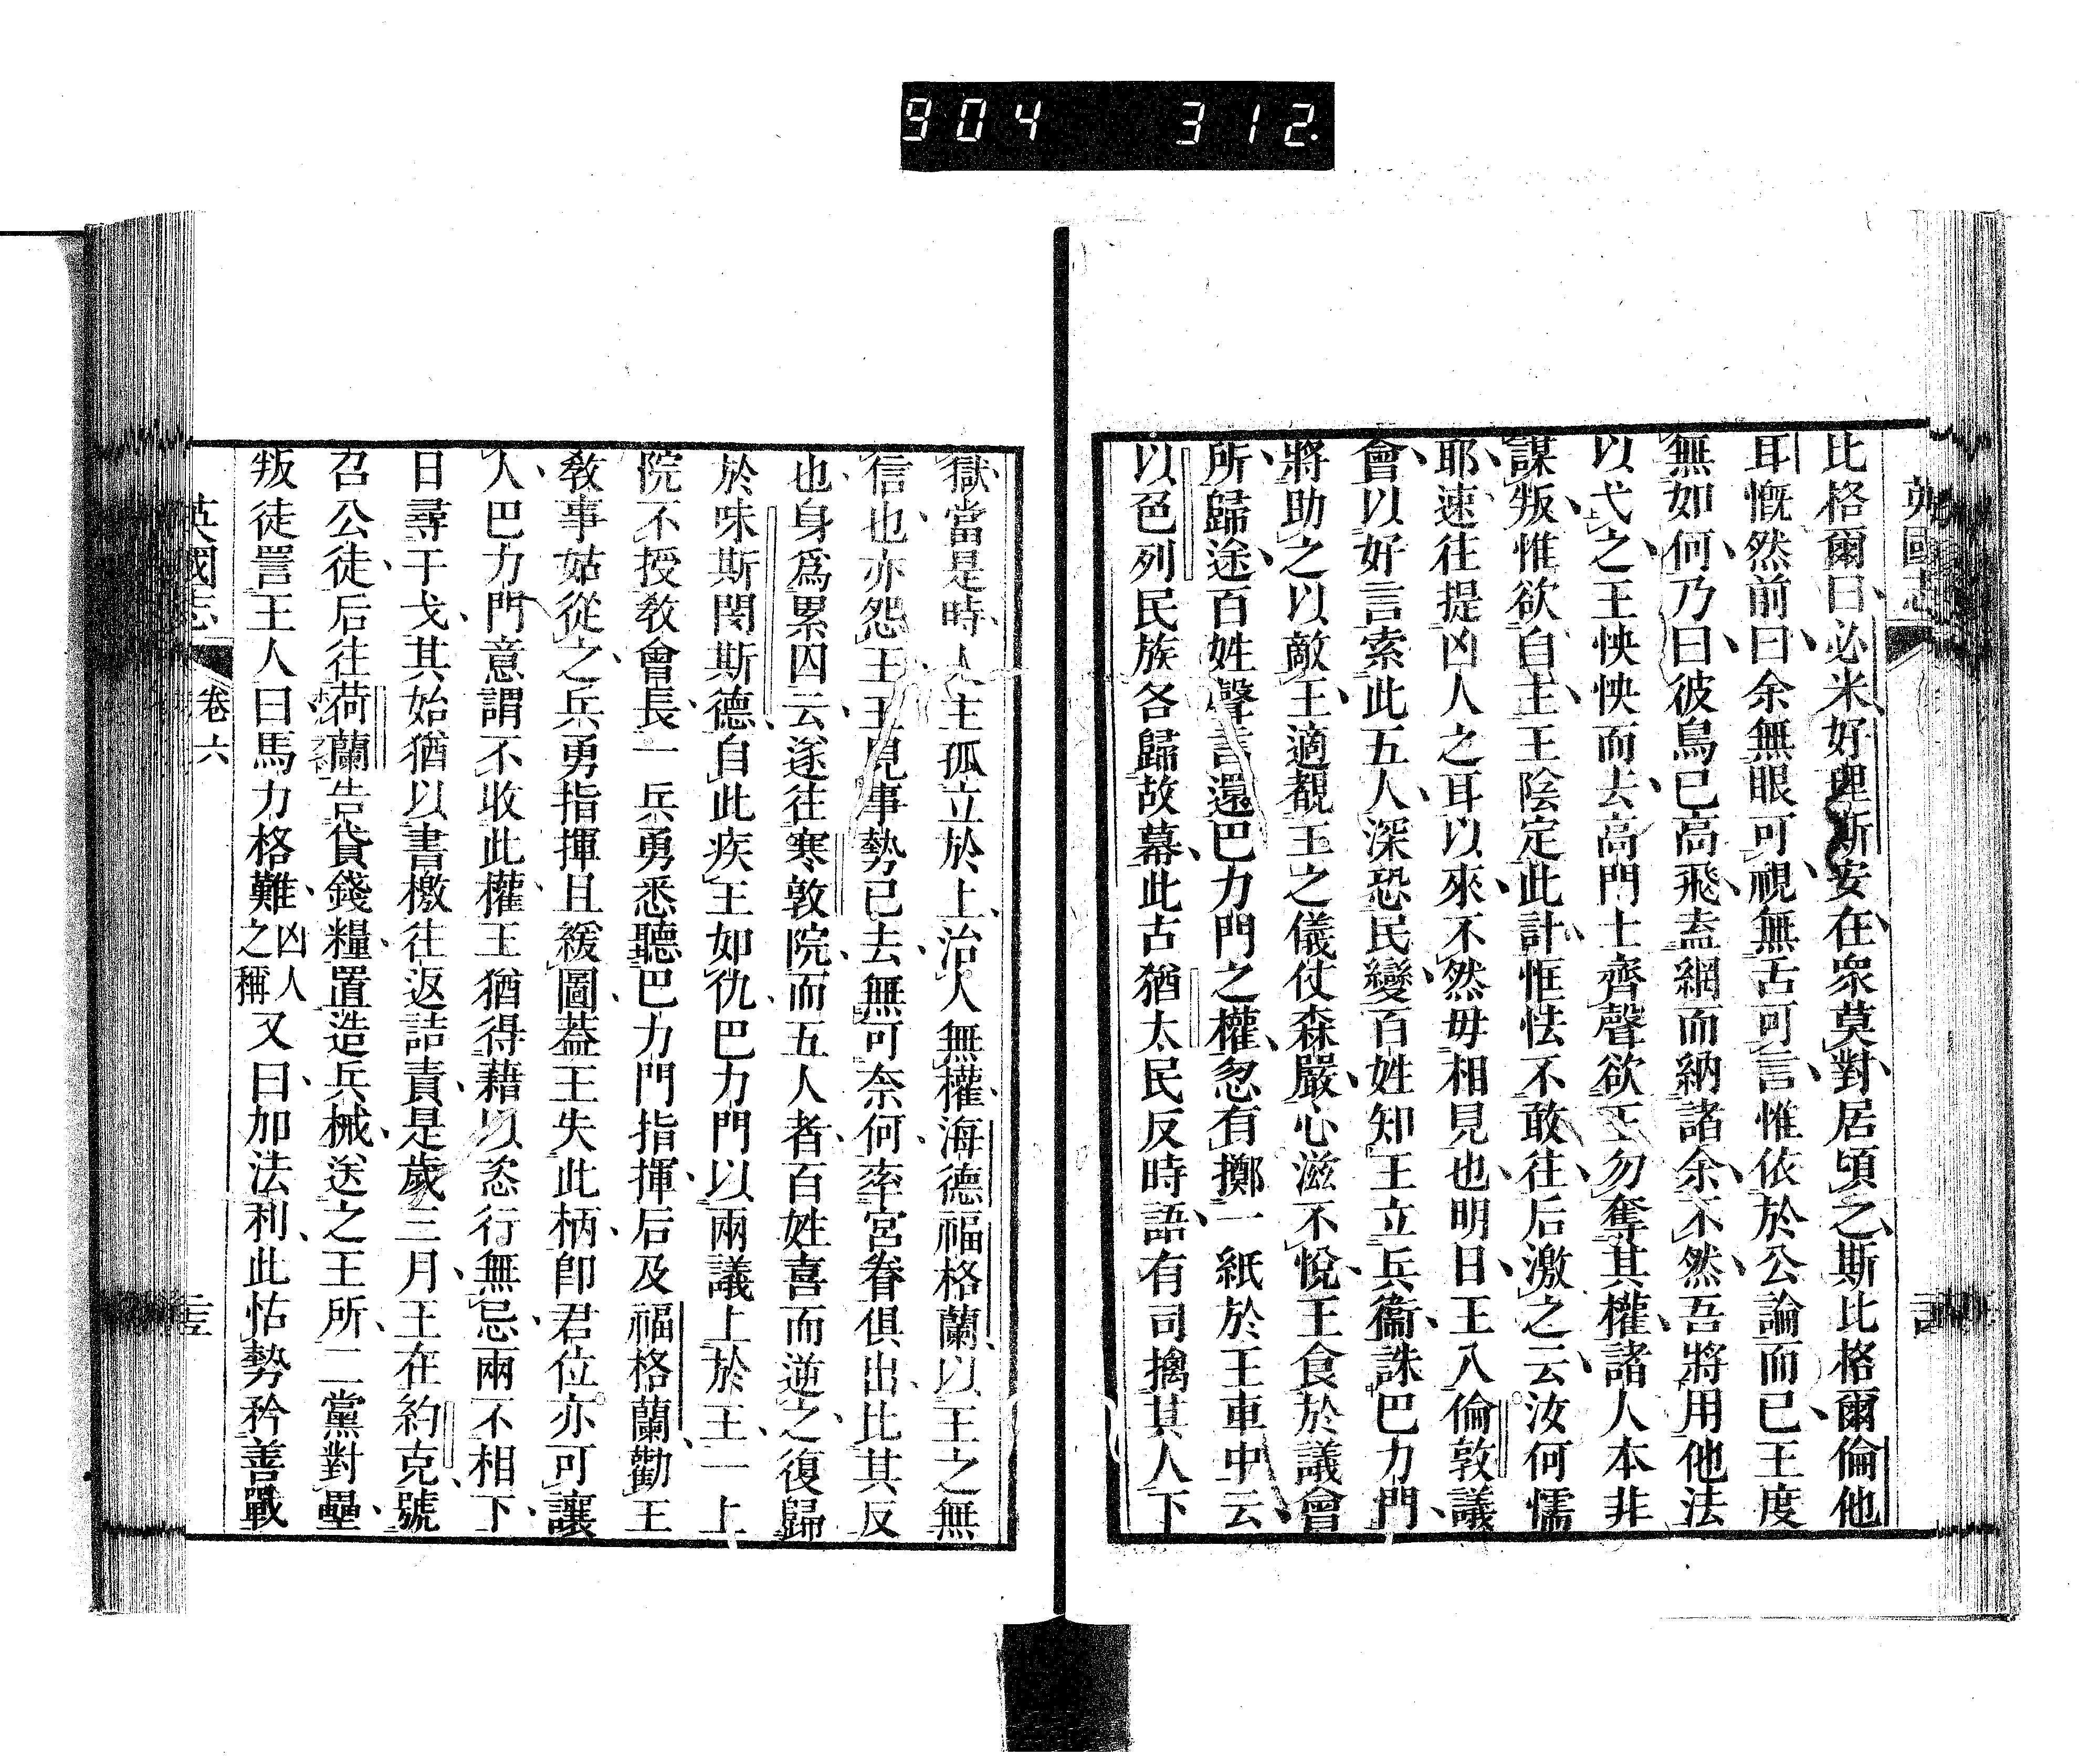 904 312.
英國志
比格爾曰必米好理斯安在衆莫對居頃之斯比格爾倫他
耳慨然前曰余無眼可視無舌可言惟依於公論而已王度
無如何乃曰彼鳥已高飛盍網而納諸余不然吾將用他法
以弋之王怏怏而去高門士齊聲欲王勿奪其權諸人本非
謀叛惟欲自主王陰定此計恇怯不敢往后激之云汝何懦
耶速往提凶人之耳以來不然毋相見也明日王入倫敦議
會以好言索此五人深恐民變百姓知王立兵衞誅巴力門
將助之以敵王適覩王之儀仗森嚴心滋不悅王食於議會
所歸途百姓聲言還巴力門之權忽有擲一紙於王車中云
以色列民族各歸故幕此古猶太民反時語有司擒其人下
獄當是時人主孤立於上治人無權海德福格蘭以王之無
信也亦怨王王見事勢已去無可奈何率宮眷俱出比其反
也身爲累囚云遂往寒敦院而五人者百姓喜而逆之復歸
於味斯閔斯德自此疾王如仇巴力門以兩議上於王一上
院不授敎會長一兵勇悉聽巴力門指揮后及福格蘭勸王
敎事姑從之兵勇指揮且緩圖葢王失此柄卽君位亦可讓
人巴力門意謂不收此權王猶得藉以恣行無忌兩不相下
日尋干戈其始猶以書檄往返詰責是歲三月王在約克號
召公徒后往荷蘭告貸錢糧置造兵械送之王所二黨對壘
叛徒詈王人曰馬力格難凶人之稱又曰加法利此怙勢矜善戰
英國志 卷六